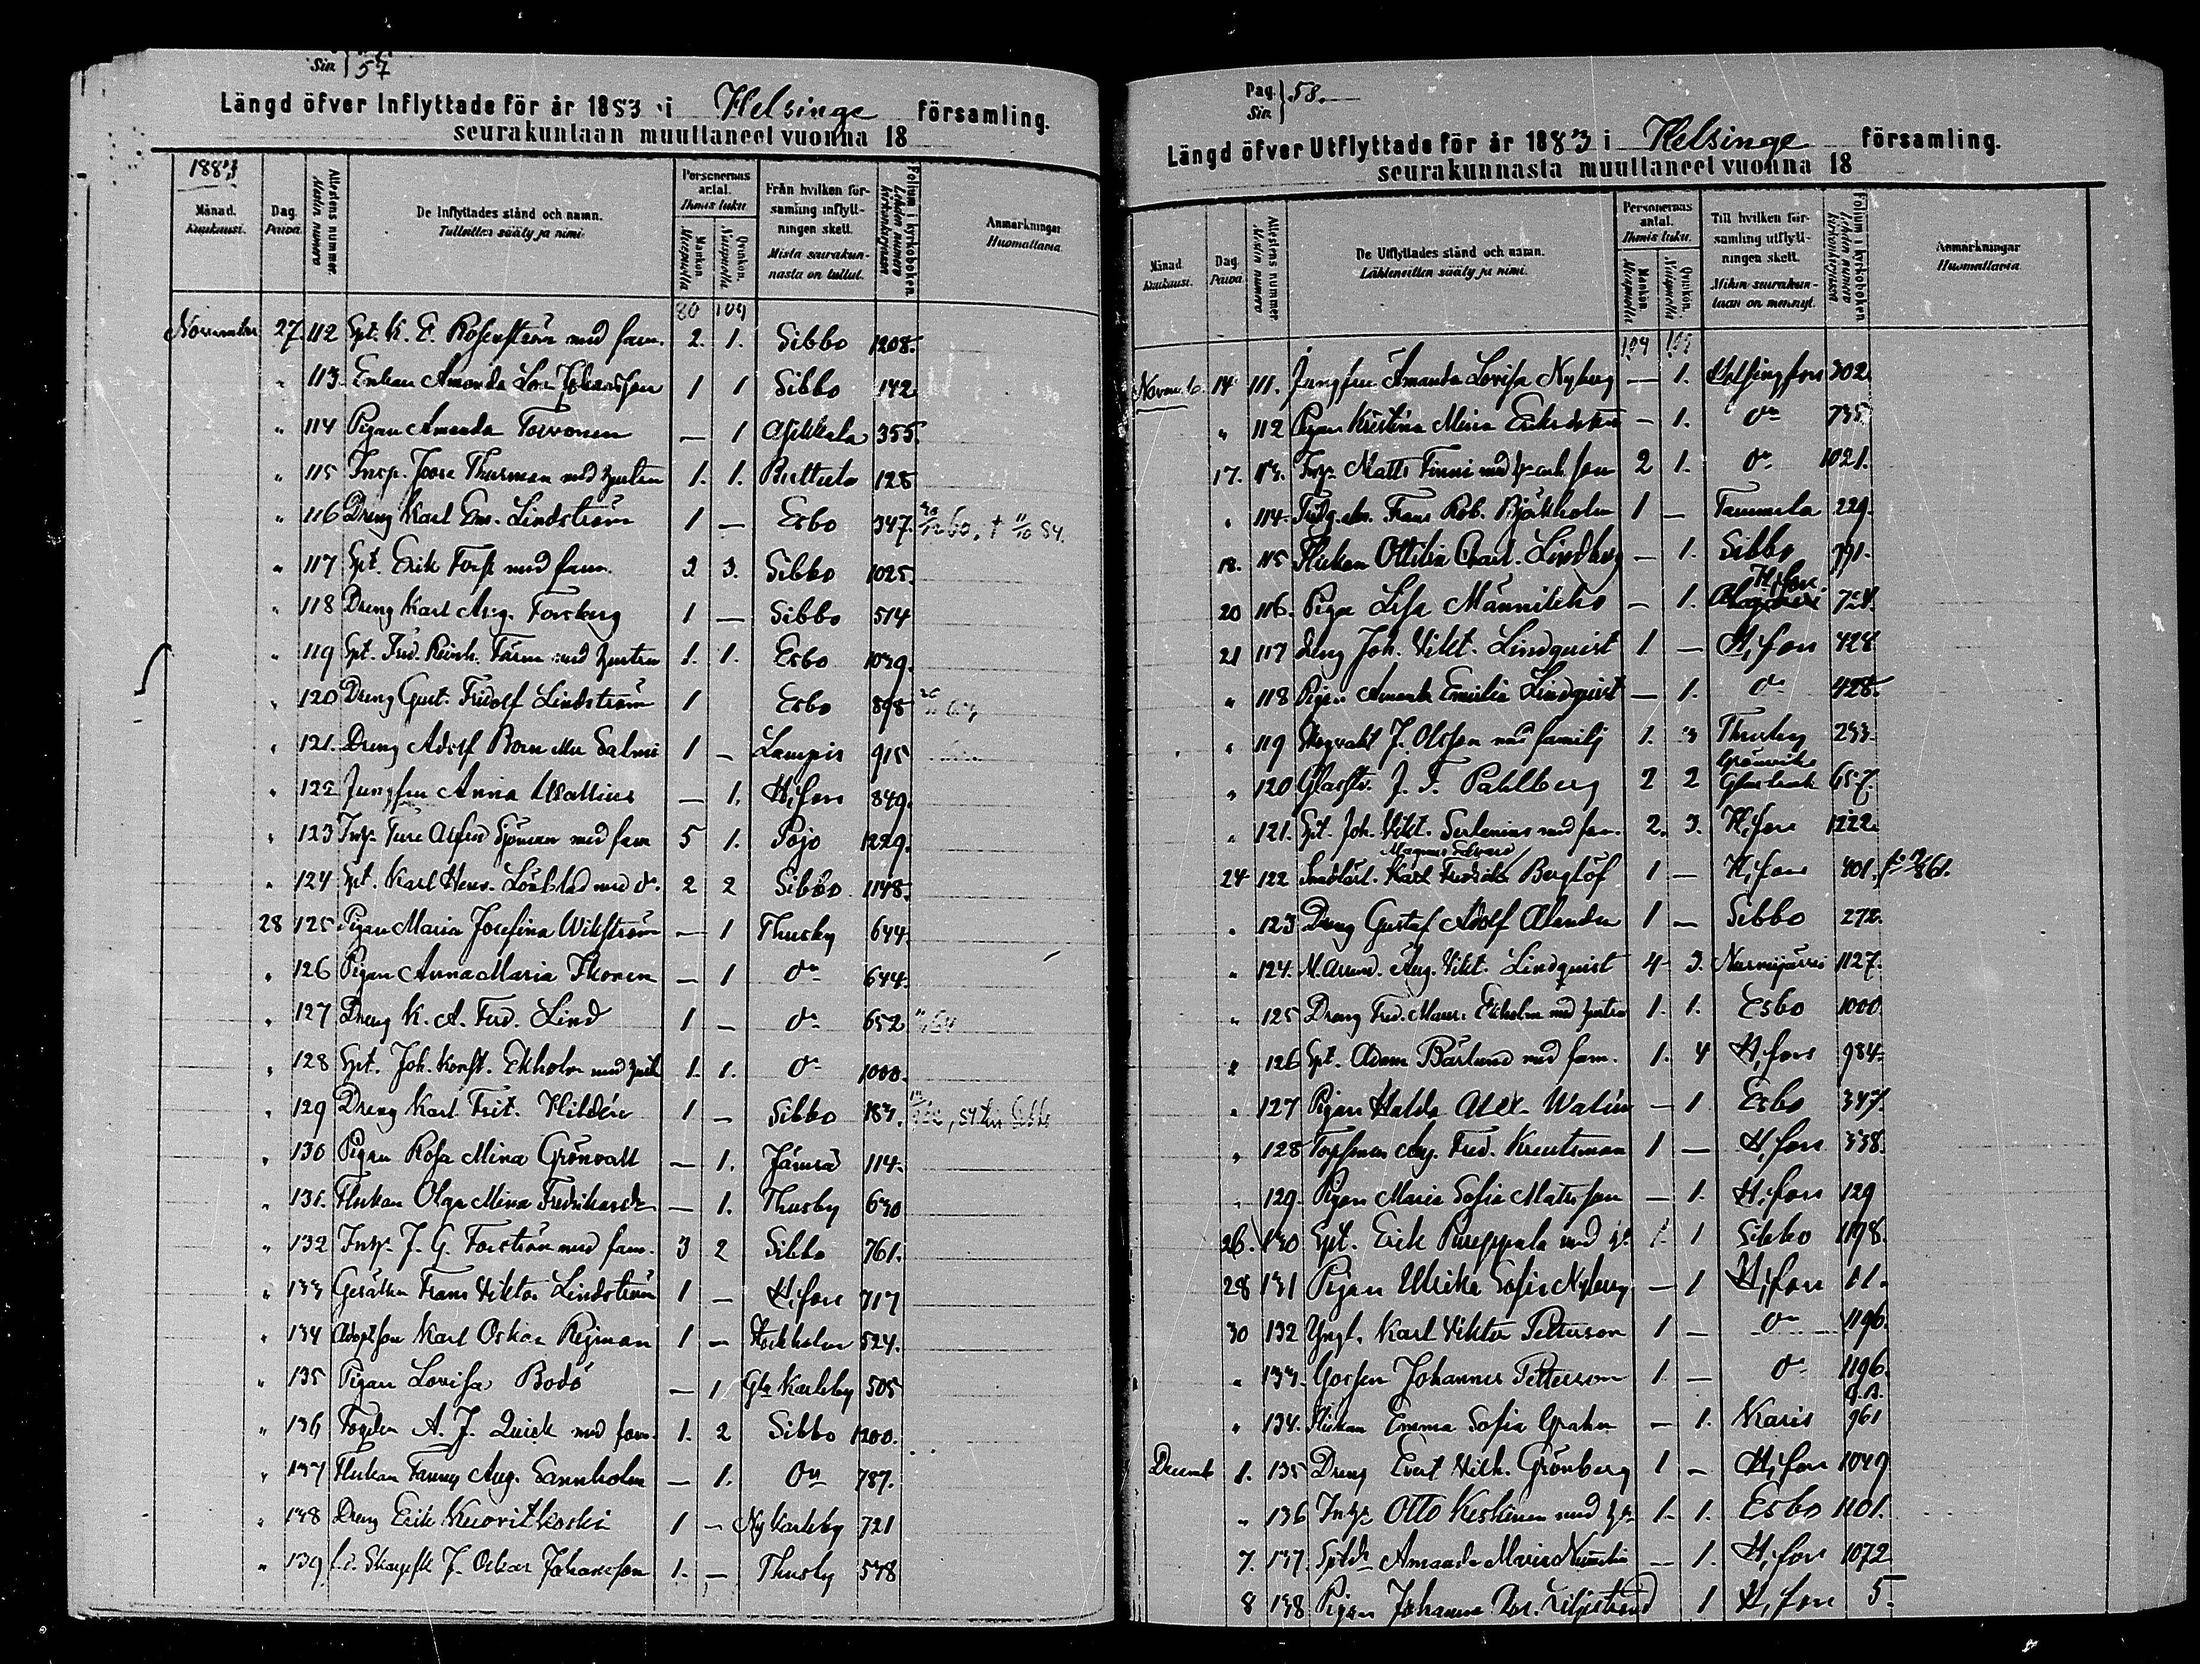 Sin } 57
Längd öfver Inflyttade för år 1883 i Helsinge församling.
seurakuntaan muuttaneet vuonna 18
1883
Månad. Kuukausi.
Dag. Päivä.
Attestens nummer
De Inflyttades stånd och namn.
Personernas antal.
Mankön. Miespuolia
Qvinkön. Naispuolia
Från hvilken församling inflyttningen skett.
Mista seurakunnasta on tullut.
Folium i kyrkoboken.
Anmärkningar
Huomattavia.
80 109
November 27. 112 Spt. K. E. Rosenström med fam. 2. 1. Sibbo 1208.
" 113. Enkan Amanda Johansson 1 1 Sibbo 142
" 114 Pigan Amanda Toivonen — 1 Asikkala 355.
" 115 Insp. Thurman med hustru 1. 1. 128
" 116 Dreng Karl Em. Lindström 1 — Esbo 347. 84.
" 117 Spt. Erik Forss med fam. 2 3. Sibbo 1025.
" 118 Dreng Karl Aug. Forsberg 1 — Sibbo 514
" 119 Spt. Fred. med hustru 1. 1. Esbo 1039.
" 120 Dreng Gust. Fridolf Lindström 1 Esbo 898
" 121. Dreng Adolf Salmi 1 — Lampis 915
" 122 Jungfru Anna Wallius — 1. H,fors 849.
" 123 Insp. Ture Alfred Sjöman med fam 5 1. Pojo 1229.
" 124 Spt. Karl Henr. Lönblad med do. 2 2 Sibbo 1148.
28 125 Pigan Maria Josefina Wikström — 1 Thusby 644.
" 126 Pigan Anna Maria Ikonen — 1 do 644.
" 127 Dreng K. A. Ferd. Lind 1 — do 652
" 128 Spt. Joh. Konst. Ekholm med hust 1. 1. do 1000.
" 129 Dreng Karl Frit. Hildén 1 — Sibbo 183.
" 130 Pigan Rosa Mina Grönvall — 1. Jämsä 114.
" 131. Flickan Olga Mina — 1. Thusby 630
" 132 Insp. J. G. Forström med fam. 3 2 Sibbo 761.
" 133 Gesällen Frans Viktor Lindström 1 — H,fors 717
" 134 Adoptson Karl Oskar Rejman 1 — Stockholm 524.
" 135 Pigan Lovisa Bodö — 1 Gla Karleby 505
" 136 Fogden A. J. Quick med fam. 1. 2 Sibbo 1200.
" 137 Flickan Fanny Aug. Sannholm — 1. do 787.
" 138 Dreng Erik 1 — Ny Karleby 721
" 139 J. Oskar Johansson 1. — Thusby 578
Pag. Sin. } 58.
Längd öfver Utflyttade för år 1883 i Helsinge församling.
seurakunnasta muuttaneet vuonna 18
Månad. Kuukausi.
Dag. Päivä.
Attestens nummer
De Utflyttades stånd och namn.
Personernas antal.
Mankön. Miespuolia
Qvinkön. Naispuolia
Till hvilken församling utflyttningen skett.
Mihin seurakuntaan on mennyt.
Folium i kyrkoboken
Anmärkningar
Huomattavia
Novemb. 14 111. Jungfru Amanda Lovisa Nyberg — 1. Helsingfors 302
" 112 Pigan Kristina Maria Eriksdotter — 1. do 735.
17. 113. Insp. Matts Finni med h. och son 2 1. do 1021.
" 114. Frans Rob. Björkholm 1 — Tammela 229.
18. 115 Flickan Ottilia Charl. Lindberg — 1. Sibbo 791.
20 116. Pigan Lisa Männikkö — 1. H,fors
21 117 Dreng Joh. Vikt. Lindquist 1 — H,fors 428
" 118 Pigan Amanda Emilia Lindquist — 1. do 428.
" 119 Skogvakt J. Olsson med familj 1. 3 Thusby 233.
" 120 J. F. Pahlberg 2 2 Grönviks Glasbruk 657.
" 121. Spt. Joh. Vikt. Serlenius med fam. 2. 3. H,fors 1222.
Magnus Edvard
24 122 Karl Fredrik Berglöf 1 — H,fors 401.
" 123 Dreng Gustaf Adolf Alander 1 — Sibbo 272.
" 124. M. Arrend. Aug. Vikt. Lindquist 4 3. Nurmijärvi 1127.
" 125 Dreng Fred. Maur. Ekholm med hustru 1. 1. Esbo 1000
" 126 Spt. Adam Bärlund med fam. 1. 4 H,fors 984.
" 127 Pigan Hulda Alex. Walén — 1 Esbo 347.
" 128 Aug. Fred. Kreutsman 1 — H,fors 338.
" 129. Pigan Maria Sofia Matsson — 1. H,fors 129
26. 130 Spt. Erik med h. 1 1 Sibbo 1198.
28 131 Pigan Ulrika Sofia Nyberg — 1 H,fors 11.
30 132 Yngl. Karl Viktor Petterson 1 — do 1196.
" 133. Gossen Johannes Petterson 1. — do 1196.
" 134. Flickan Emma Sofia Grahn — 1. Karis 961
Decemb 1. 135 Dreng Evert Vilh. Grönberg 1 — H,fors 1049
" 136 Insp. Otto Keskinen med h. 1. 1. Esbo 1101.
7. 137. Amanda Maria Nummelin — 1. H,fors 1072
8 138 Pigan Johanna Liljestrand 1 H,fors 5.